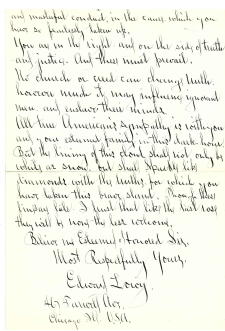 and masterful conduct, in the cause which you
have so fearlessly taken up.
You are in the right and on the side of truth
and justice. And these must prevail.
No church or creed can change truth
however much it may influence ignorant
men, and enslave their minds.
All true American's sympathy is with you
and your esteemed family in this dark hour.
But the lining of this cloud shall not only be
white as snow, but shall sparkle like
diamonds with the truths for which you
have taken this brave stand. Though these
lines are late. I trust that like the last rose
they will be none the less welcome.
Believe me Esteemed & Honored Sir.
Most Respectfully Yours,
Edward Leroy.
46 Farwell Ave.
Chicago Ill. U.S.A.